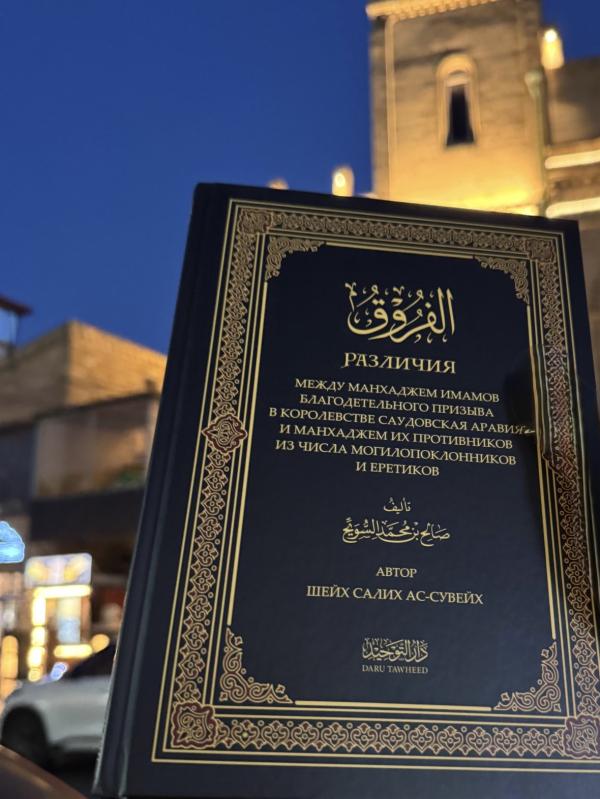 الفروق
РАЗЛИЧИЯ
МЕЖДУ МАНХАДЖЕМ ИМАМОВ
БЛАГОДЕТЕЛЬНОГО ПРИЗЫВА
В КОРОЛЕВСТВЕ САУДОВСКАЯ АРАВИЯ
И МАНХАДЖЕМ ИХ ПРОТИВНИКОВ
ИЗ ЧИСЛА МОГИЛОПОКЛОННИКОВ
И ЕРЕТИКОВ
تأليف
صالح بن محمد السويح
АВТОР
ШЕЙХ САЛИХ АС-СУВЕЙХ
دار التوحيد
DARU TAWHEED